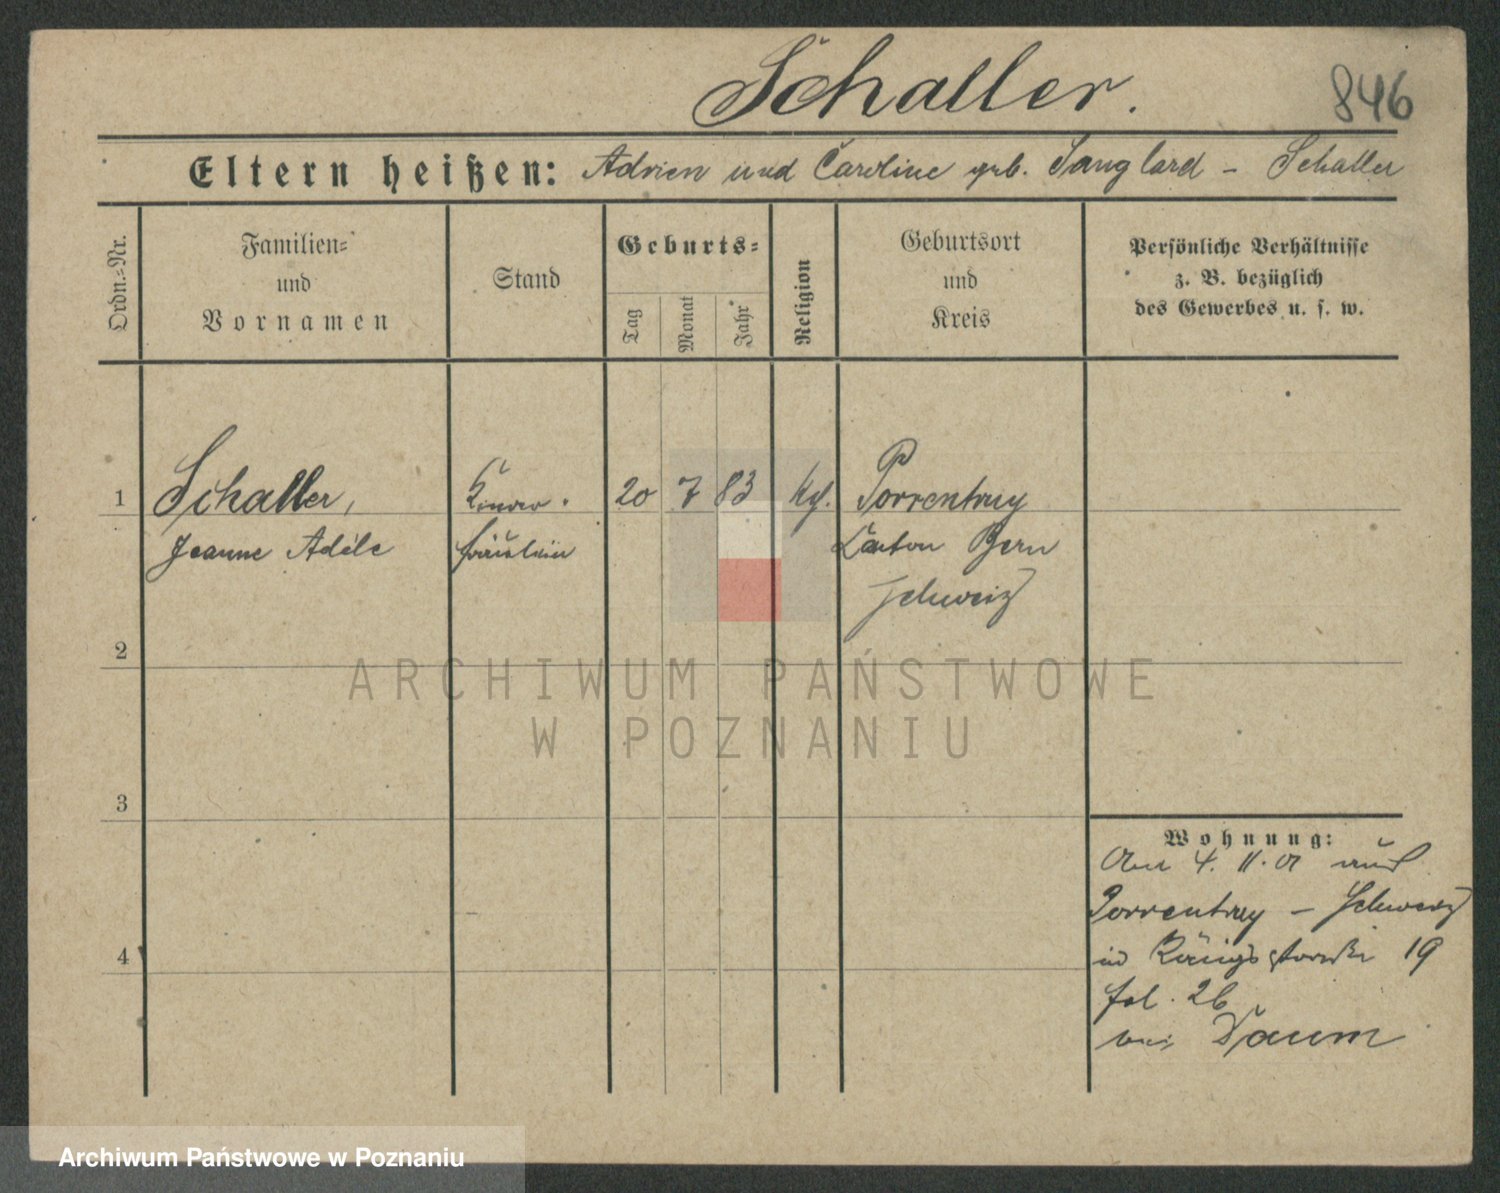 Schaller.
846
Eltern heißen: Adrien und Caroline geb. Sanglard - Schaller
Ordn.-Nr.
Familien-
und
Vornamen
Stand
Geburts-
Tag
Monat
Jahr
Religion
Geburtsort
und
Kreis
Persönliche Verhältnisse
z. B. bezüglich
des Gewerbes u. s. w.
1
Schaller,
Jeanne Adèle
Kinder-
fräulein
20 7 83
Porrentruy
Canton Bern
Schweiz
2
3
4
Wohnung:
4. 11. 01
Porrentruy - Schweiz
19
fol. 26
bei Daum
ARCHIWUM PAŃSTWOWE
W POZNANIU
Archiwum Państwowe w Poznaniu